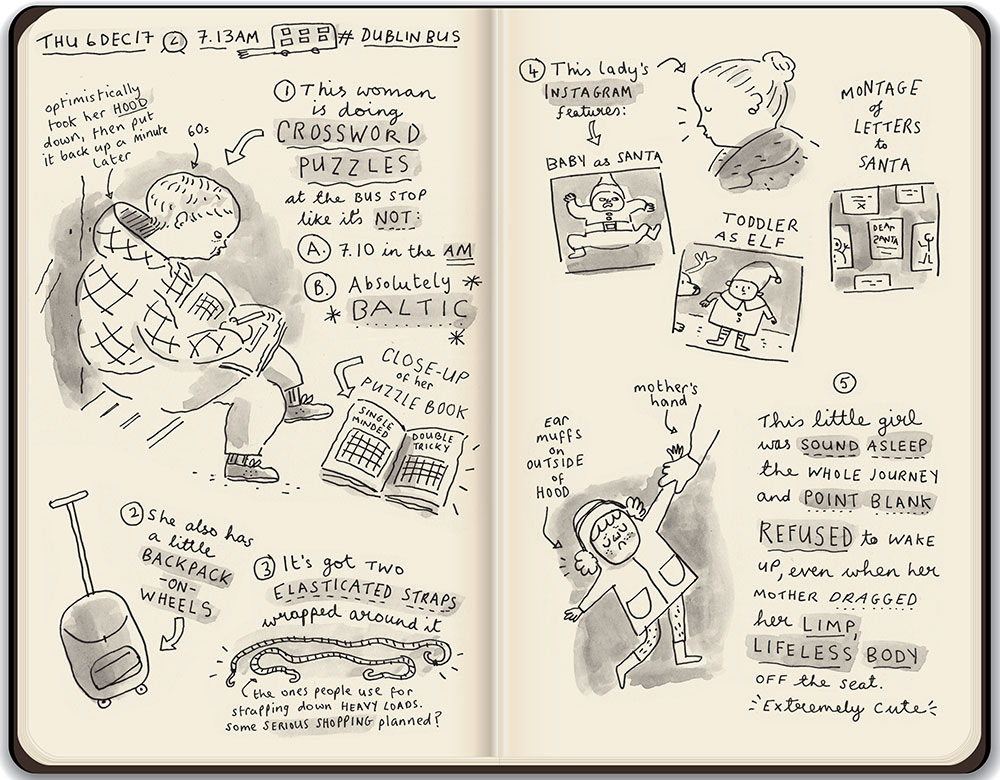 THU 6 DEC 17 @ 7.13AM # DUBLIN BUS
optimistically
took her HOOD
down, then put
it back up a minute
later
60s
① This woman
is doing
CROSSWORD
PUZZLES
at the BUS STOP
like it's NOT:
A. 7.10 in the AM
B. Absolutely
* BALTIC *
CLOSE-UP
of her
PUZZLE BOOK
SINGLE
MINDED
DOUBLE
TRICKY
② She also has
a little
BACKPACK
-ON-
WHEELS
③ It's got TWO
ELASTICATED STRAPS
wrapped around it
the ones people use for
strapping down HEAVY LOADS.
Some SERIOUS SHOPPING planned?
④ This lady's
INSTAGRAM
features:
BABY as SANTA
TODDLER
AS ELF
MONTAGE
of
LETTERS
to
SANTA
DEAR
SANTA
⑤
This little girl
was SOUND ASLEEP
the WHOLE JOURNEY
and POINT BLANK
REFUSED to WAKE
UP, even when her
MOTHER DRAGGED
her LIMP,
LIFELESS BODY
OFF the SEAT.
Extremely cute
mother's
hand
EAR
MUFFS
on
OUTSIDE
OF
HOOD